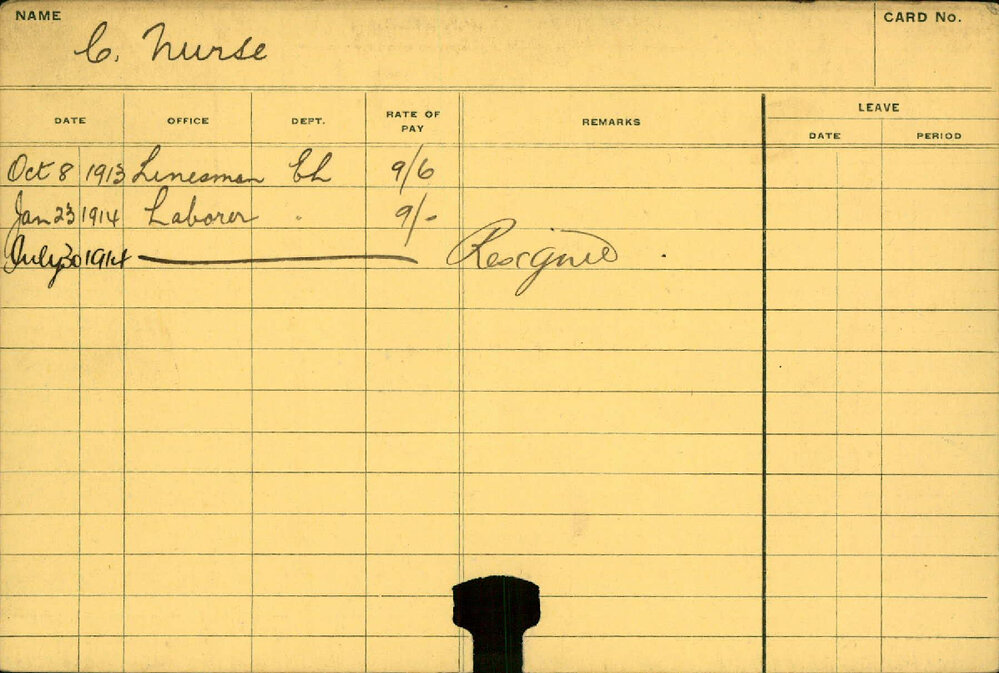 NAME CARD No.
C. Nurse
LEAVE
DATE OFFICE DEPT. RATE OF PAY REMARKS DATE PERIOD
Oct 8 1913 Linesman EL 9/6
Jan 23 1914 Laborer " 9/-
July 30 1914 Resigned